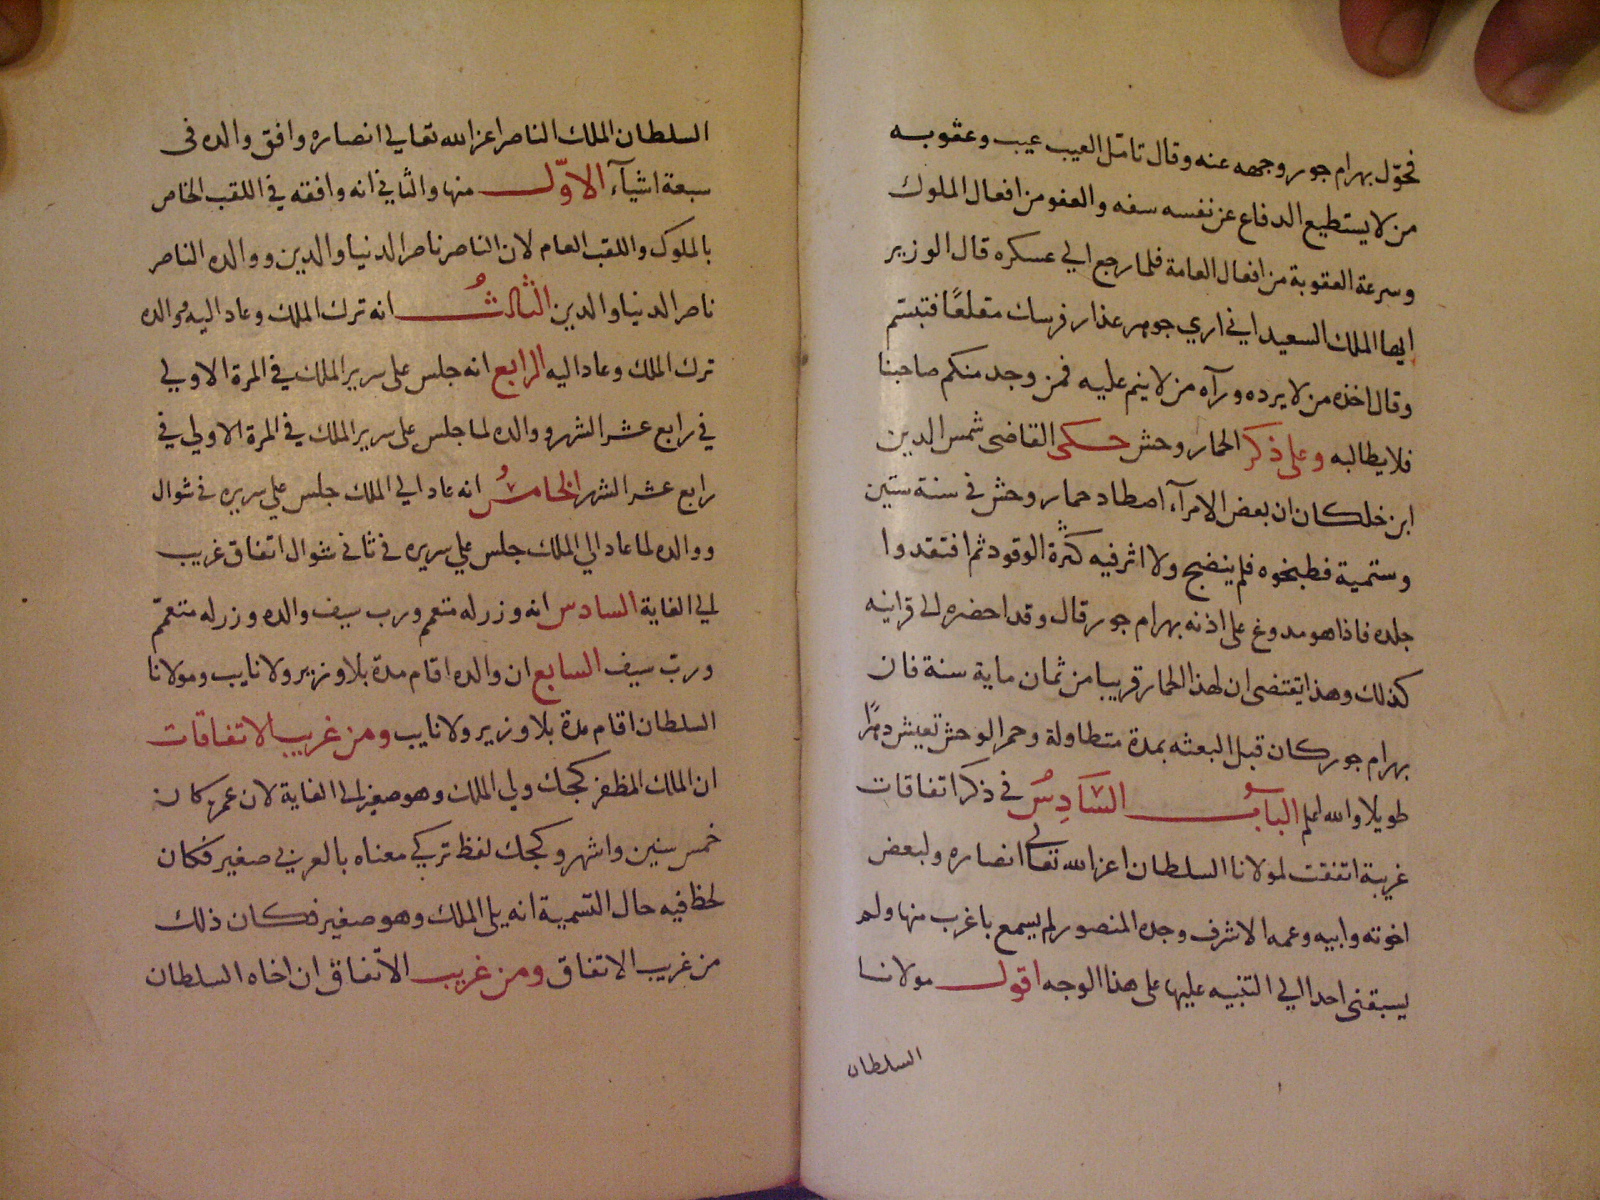 فحوّل بهرام جور وجهه عنه وقال تامّل العيب عيب وعقوبه
من لا يستطيع الدفاع عن نفسه سفه والعفو من افعال الملوك
وسرعة العقوبة من افعال العامة فلما رجع الي عسكره قال الوزير
ايها الملك السعيد اني اري جوهر عذار فرسك مقلعًا فتبسّم
وقال اخذه من لا يرده ورآه من لا ينم عليه فمن وجد منكم صاحبنا
فلا يطالبه وعلى ذكر الحمار وحش حكى القاضى شمس الدين
ابن خلكان ان بعض الامرآء اصطاد حمار وحش في سنة ستين
وستمية فطبخوه فلم ينضج ولا اثر فيه كثرة الوقود ثم افتقدوا
جلده فاذا هو مدوغ على اذنه بهرام جور قال وقد احضره الى قراينه
كذلك وهذا يقتضى ان لهذا الحمار قريبا من ثمان ماية سنة فان
بهرام جور كان قبل البعثه بمدة متطاولة وحمر الوحش تعيش دهرًا
طويلا والله اعلم الباب السَّادِسُ في ذكر اتفاقات
غريبة اتفقت لمولانا السلطان اعز الله تعالى انصاره ولبعض
اخوته وابيه وعمه الاشرف وجده المنصور لم يسمع باغرب منها ولم
يسبقنى احد الي التنبيه عليها على هذا الوجه اقول مولانا
السلطان
السلطان الملك الناصر اعز الله تعالي انصاره وافق والده فى
سبعة اشيآء الاوّل منها والثاني انه وافقه في اللقب الخاص
بالملوك واللقب العام لان الناصر ناصر الدنيا والدين ووالده الناصر
ناصر الدنيا والدين الثالثُ انه ترك الملك وعاد اليه ووالده
ترك الملك وعاد اليه الرابع انه جلس على سرير الملك في المرة الاولي
في رابع عشر الشهر ووالده لما جلس على سرير الملك في المرة الاولي في
رابع عشر الشهر الخامسُ انه عاد الي الملك جلس علي سريره في شوال
ووالده لما عاد الي الملك جلس علي سريره في ثاني شوال اتفاق غريب
الي الغاية السادس انه وزر له متعمم ورب سيف والده وزر له متعمّم
ورب سيف السابع ان والده اقام مدة بلا وزير ولا نايب ومولانا
السلطان اقام مدة بلا وزير ولا نايب ومن غريب الاتفاقات
ان الملك المظفر كجك ولي الملك وهو صغير الى الغاية لان عمره كان
خمس سنين واشهر وكجك لفظ تركي معناه بالعربي صغير فكان
لحظ فيه حال التسمية انه يلى الملك وهو صغير فكان ذلك
من غريب الاتفاق ومن غريب الاتّفاق ان اخاه السلطان